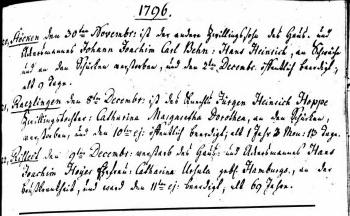 1796.
20, Höcken den 30ten Novembr: ist der andere Zwillingssohn des Haus- und
Ackermannes Johann Joachim Carl Behn: Hans Heinrich, an Schwäche
und an den verstorben, und den 2ten Decembr. öffentlich beerdigt,
alt 9 Tage.
21, den 8ten Decembr: ist des Jürgen Heinrich Hoppe
Zwillingstochter: Catharina Margaretha Dorothea, an den
verstorben, und den 10ten ej: öffentlich beerdigt; alt 1 Jahr 2 Mon: Tage.
22, den 9ten Decembr: verstarb des Haus- und Ackermannes Hans
Joachim Ehefrau: Catharina Ursula gebh. Hamburgs, an der
und ward den 11ten ej: beerdigt, alt 69 Jahr.